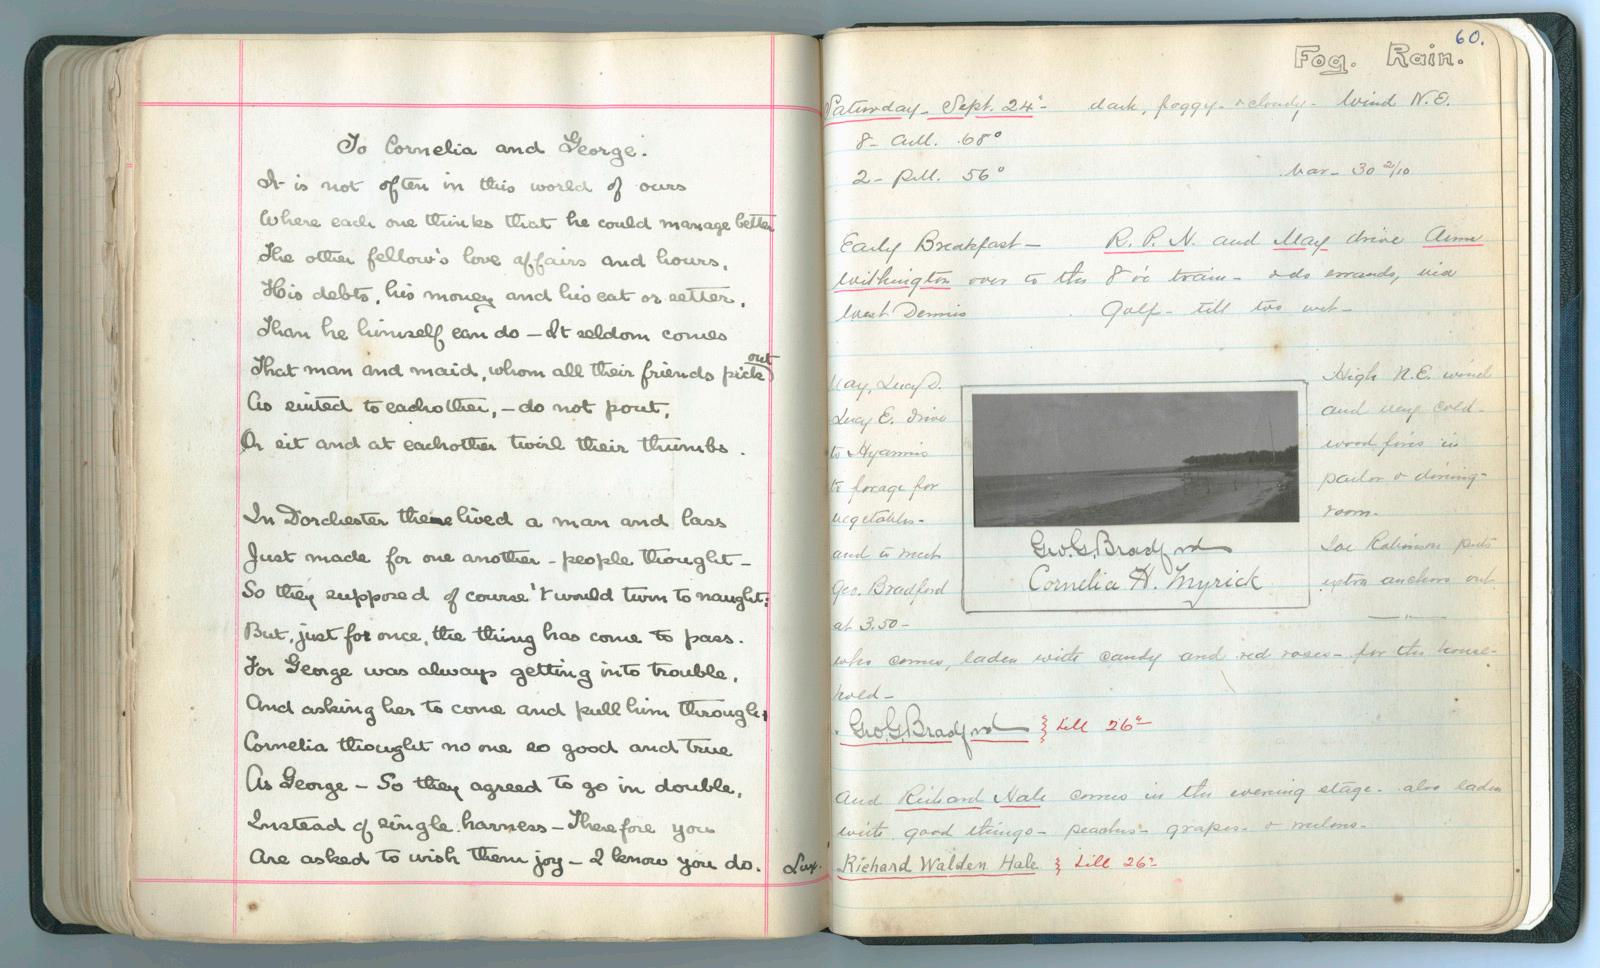 To Cornelia and George.
It is not often in this world of ours
Where each one thinks that he could manage better
The other fellow's love affairs and hours,
His debts, his money and his cat or setter,
Than he himself can do — It seldom comes
That man and maid, whom all their friends pick out
As suited to eachother, — do not pout,
Or sit and at eachother twirl their thumbs.
In Dorchester there lived a man and lass
Just made for one another — people thought —
So they supposed of course 't would turn to naught:
But, just for once, the thing has come to pass.
For George was always getting into trouble,
And asking her to come and pull him through,
Cornelia thought no one so good and true
As George — So they agreed to go in double,
Instead of single harness — Therefore you
Are asked to wish them joy — I know you do.
60.
Fog. Rain.
Saturday - Sept. 24" - dark, foggy - & cloudy - Wind N.E.
8 - A.M. 68°
2 - P.M. 56° bar - 30 2/10
Early Breakfast — R. P. N. and May drive
Withington over to the 8 train - & do errands, via
West Dennis Golf - till too wet -
May, Lucy D.
Lucy E. drive
to Hyannis
to forage for
vegetables -
and to meet
Geo. Bradford
at 3.50 -
Geo. G. Bradford
Cornelia H. Myrick
High N.E. wind
and very cold -
wood fires in
parlor & dining-
room.
Joe Robinson puts
extra anchors out
who comes, laden with candy and red roses - for the house-
hold -
Geo. G. Bradford } till 26"
And Richard Hale comes in the evening stage - also laden
with good things - peaches - grapes - & melons -
Richard Walden Hale } till 26"